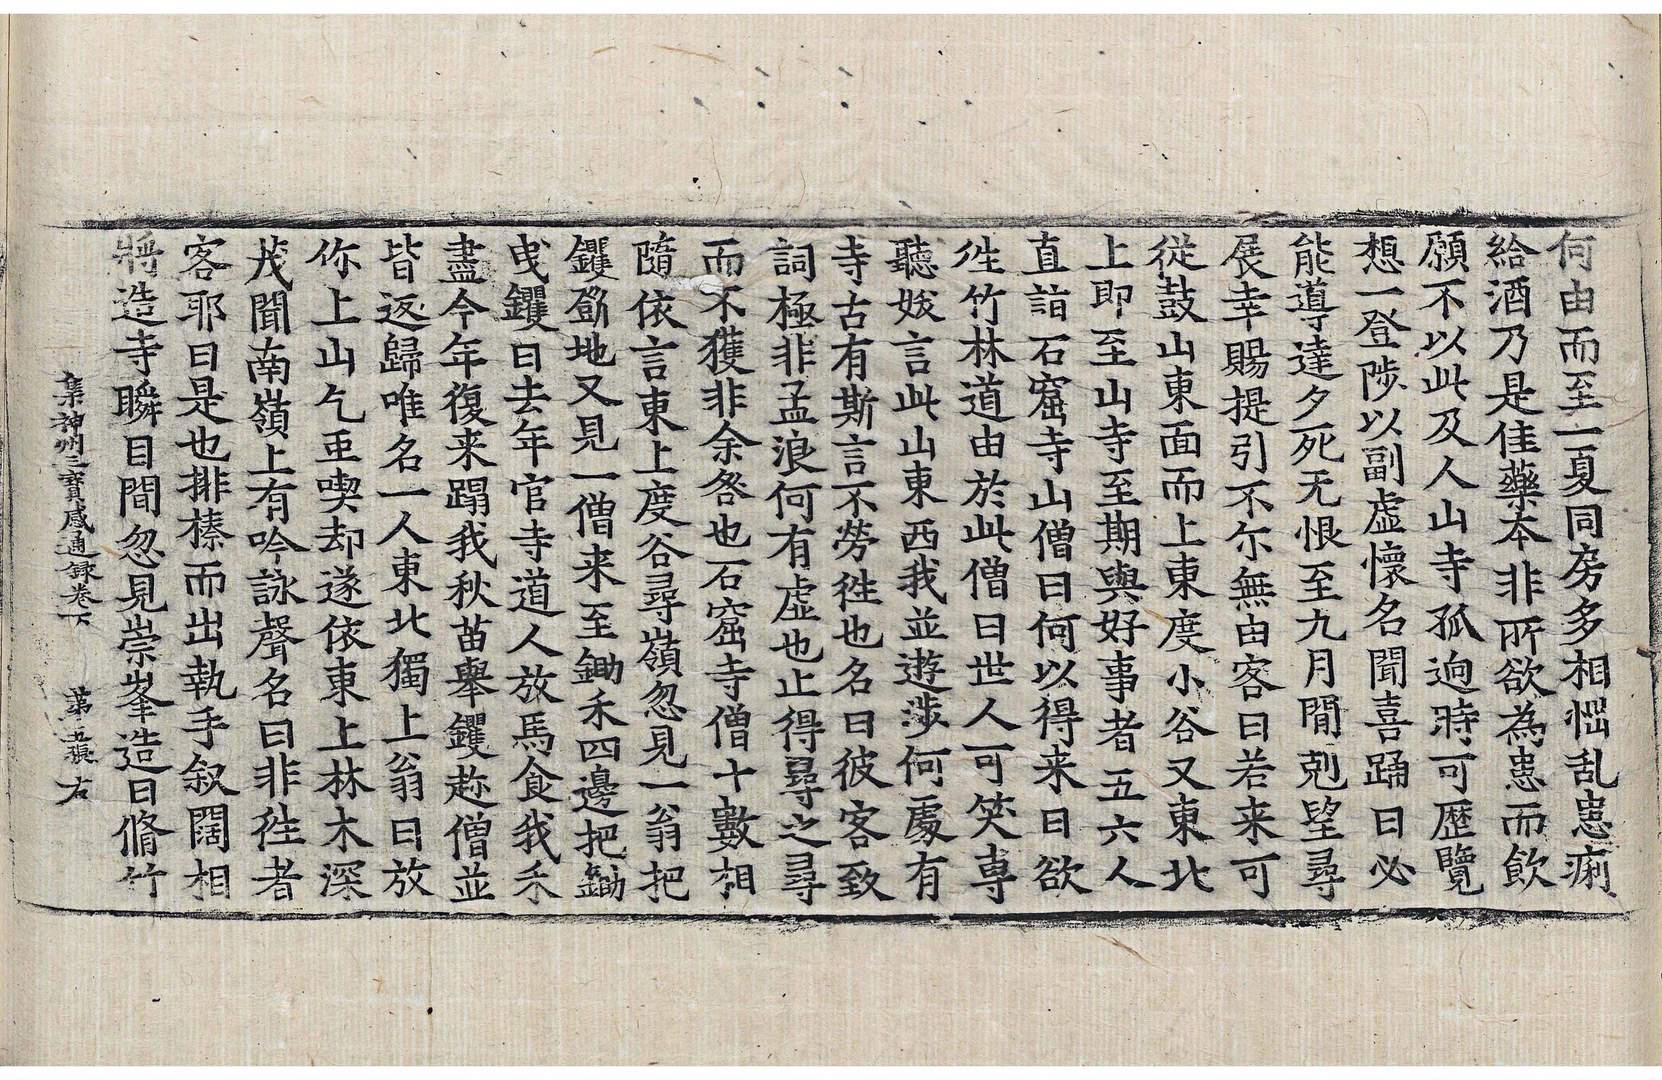 何由而至一夏同房多相惱乱患痢
給酒乃是佳藥本非所欲為患而飲
願不以此及人山寺孤迥時可歷覽
想一登陟以副虛懷名聞喜踊曰必
能導達夕死无恨至九月間剋望尋
展幸賜提引不尒無由客曰若来可
從鼓山東面而上東度小谷又東北
上即至山寺至期與好事者五六人
直詣石窟寺山僧曰何以得来曰欲
往竹林道由於此僧曰世人可笑専
聽妖言此山東西我並遊涉何處有
寺古有斯言不勞徃也名曰彼客致
詞極非孟浪何有虛也止得尋之尋
而不獲非余咎也石窟寺僧十數相
隨依言東上度谷尋嶺忽見一翁把
钁斸地又見一僧来至鋤禾四邊把鋤
曳钁曰去年官寺道人放馬食我禾
盡今年復来蹋我秋苗舉钁趂僧並
皆返歸唯名一人東北獨上翁曰放
你上山乞虫喫却遂依東上林木深
茂聞南嶺上有吟詠聲名曰非徃者
客耶曰是也排榛而出執手叙闊相
將造寺瞬目間忽見崇峯造日脩竹
集神州三寶感通錄卷下　第五張　右